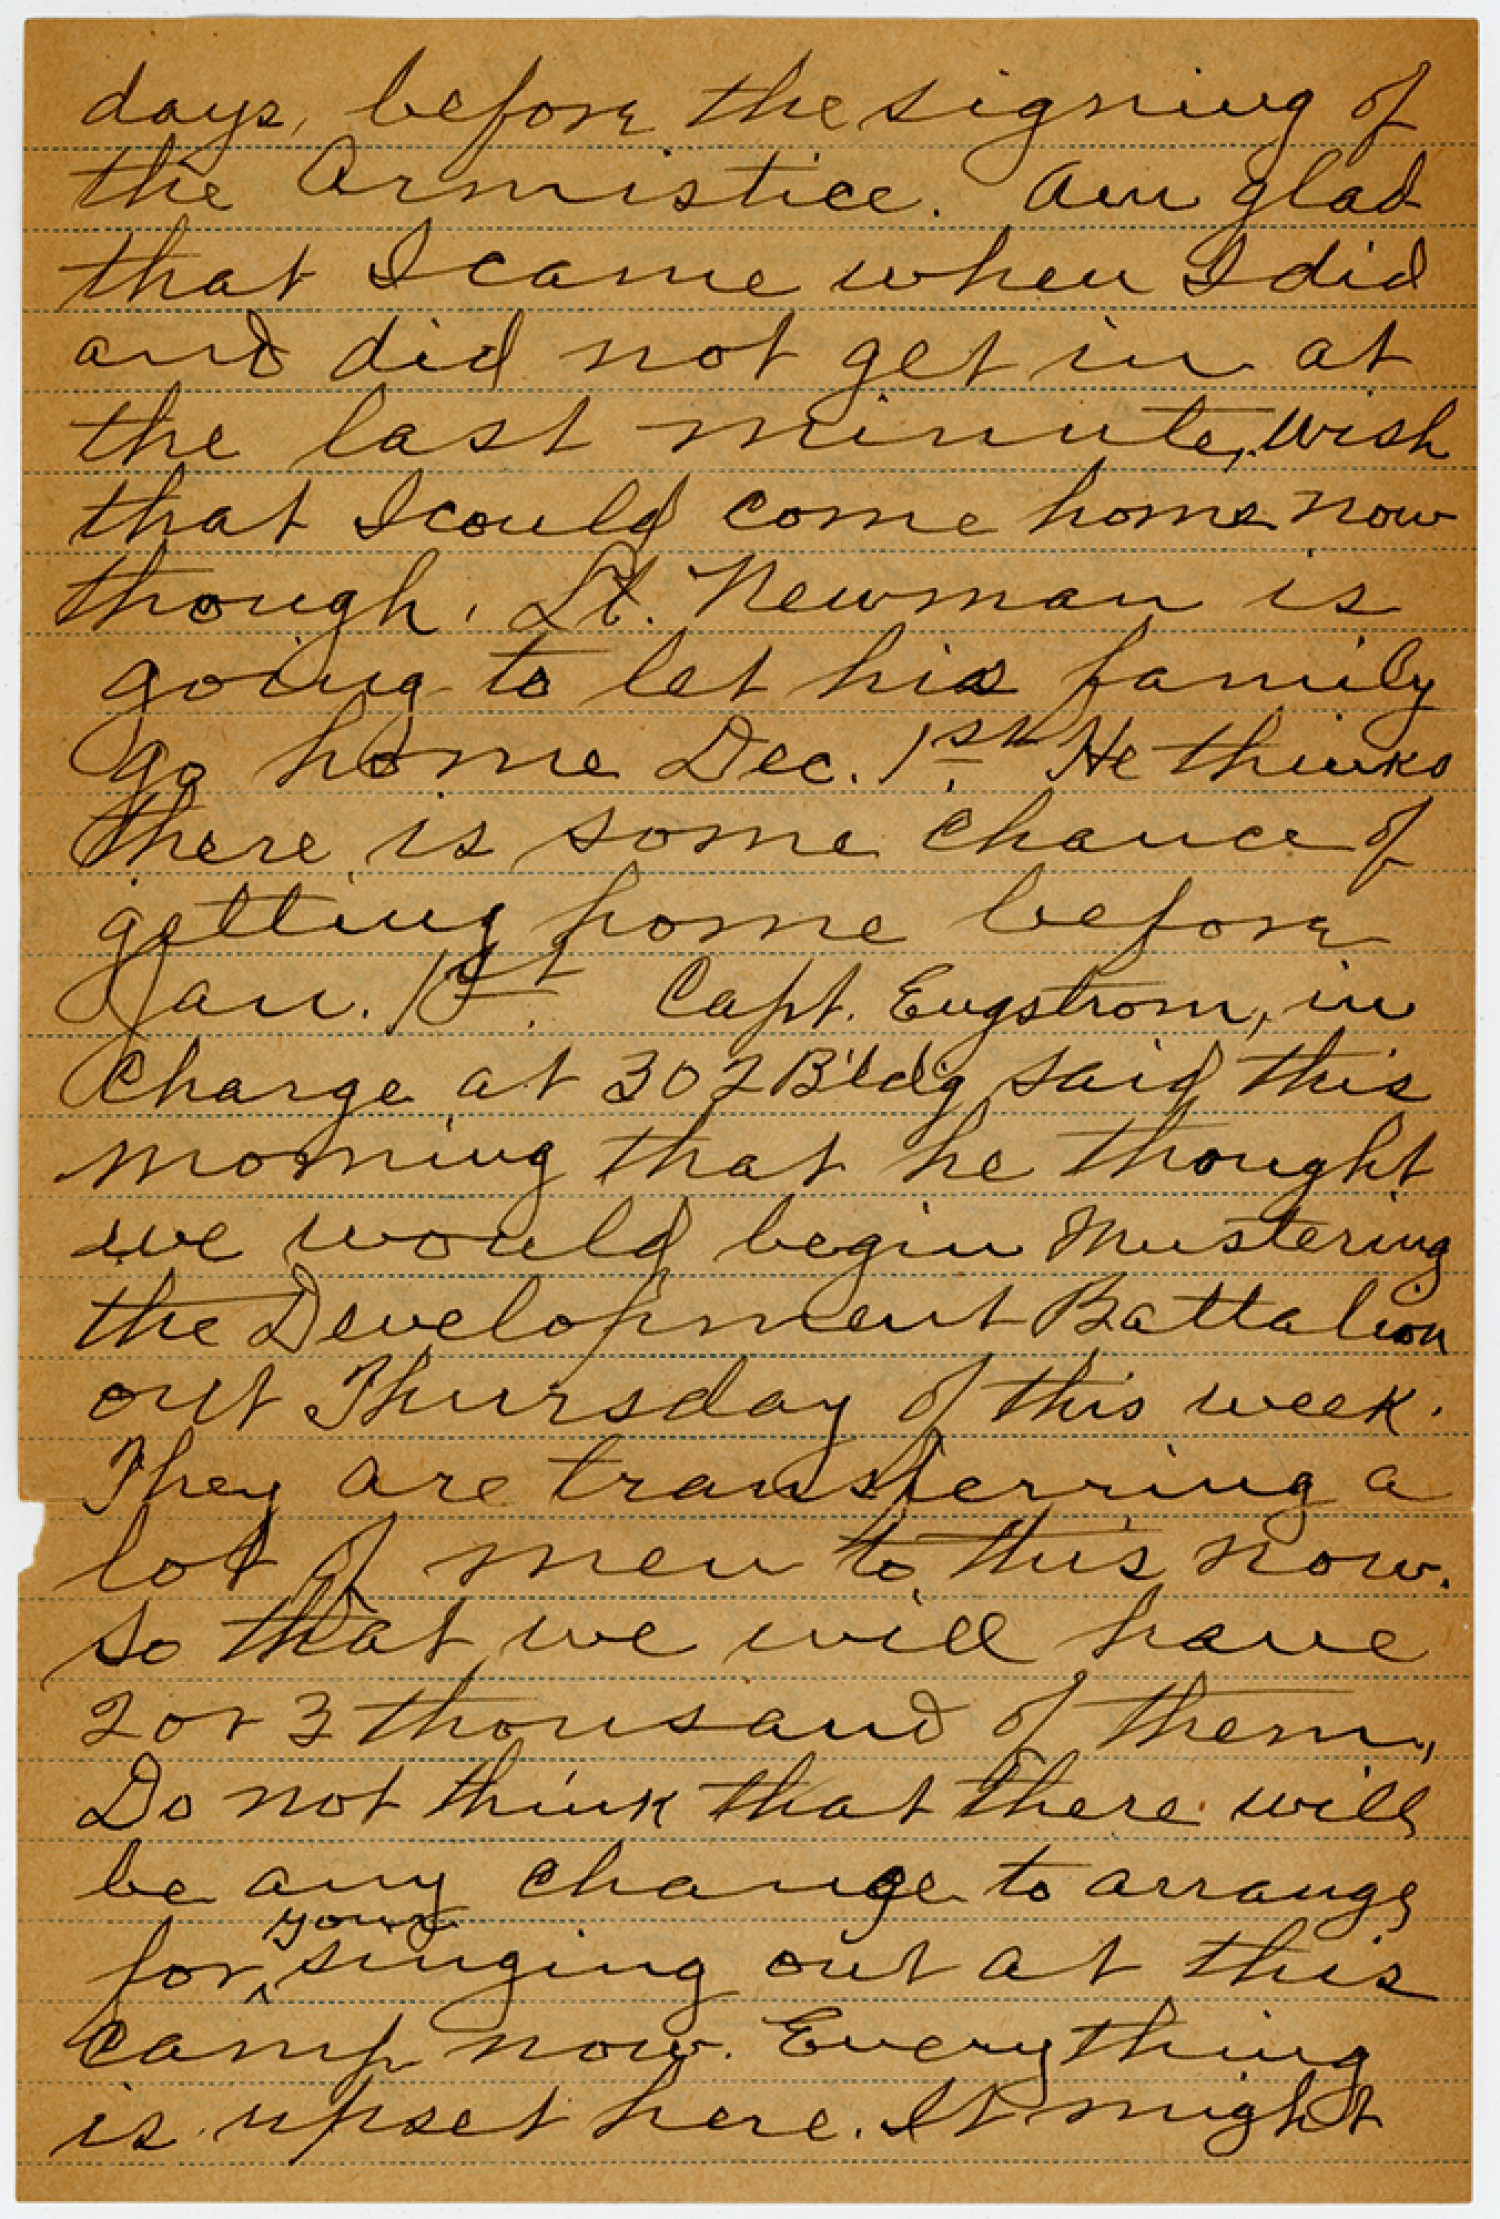 days, before the signing of
the Armistice. Am glad
that I came when I did
and did not get in at
the last minute, wish
that I could come home now
though. Lt. Newman is
going to let his family
go home Dec. 1st. He thinks
there is some chance of
getting home before
Jan. 1st. Capt. Engstrom, in
charge at 302 B'ldg said this
morning that he thought
we would begin Mustering
the Development Battalion
out Thursday of this week.
They are transferring a
lot of men to this now.
so that we will have
2 or 3 thousand of them,
Do not think that there will
be any change to arrange
for your singing out at this
camp now. Everything
is upset here. It might